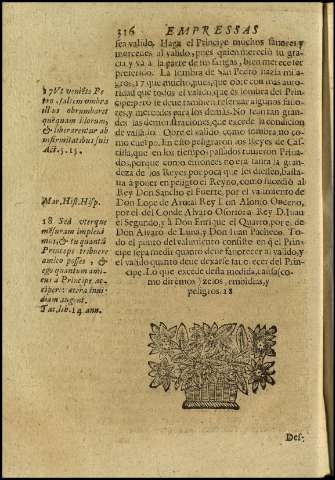 316 EMPRESSAS
sea valido. Haga el Principe muchos fauores y
mercedes al valido, pues quien mereciò su gra-
cia y và a la parte de sus fatigas, bien merece ser
preferido. La sombra de San Pedro hazia mila-
gros, 17 que mucho, pues, que obre con mas auto-
ridad que todos el valido, que es sombra del Prin-
cipe; pero se deuen tambien reseruar algunos fauo-
res y mercedes para los demas. No sean tan gran-
des las demostraciones, que excedan la condicion
de vasallo. Obre el valido como sombra no co-
mo cuerpo. En esto peligraron los Reyes de Cas-
tilla, que en los tiempos pasados tuuieron Priua-
dos, porque como entonces no era tanta la grande-
za de los Reyes por poca que les diesen, basta-
ua a poner en peligro el Reyno, como sucediò al
Rey Don Sancho el Fuerte, por el valimiento de
Don Lope de Haro, al Rey Don Alonso Onceno,
por el del Conde Aluaro Osorio, al Rey D. Iuan
el Segundo, y à Don Enrique el Quarto, por el de
Don Aluaro de Luna, y Don Iuan Pacheco. To-
do el punto del valimiento consiste en q̃ el Prin-
cipe sepa medir quanto deue fauorecer al valido, y
el valido quanto deue dexarse fauorecer del Prin-
cipe. Lo que excede desta medida, causa (co-
mo diremos) zelos, emvidias, y
peligros. 18
17 Vt veniẽte Pe-
tro, saltem umbra
illius obrumbaret
quẽquam illorum,
& liberarentur ab
infirmitatibus suis
Act. 5. 15.
Mar. Hist. Hisp.
18 Sed uterque
mẽsuram implevi
mus, & tu quantũ
Princeps tribuere
amico posset, &
ego quantum ami-
cus à Principe ac-
cipere: cetera invi-
diam augent.
Tac. lib. 14. ann.
Des-